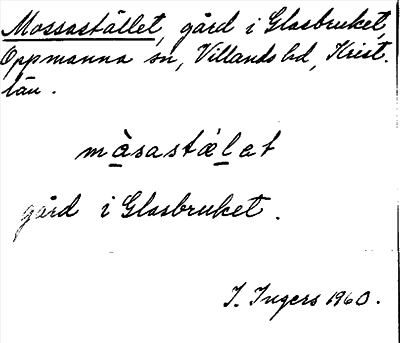 Mossastället, gård i Glasbruket,
Oppmanna sn, Villands hd, Krist.
län.
màsastálet
gård i Glasbruket.
I. Ingers 1960.